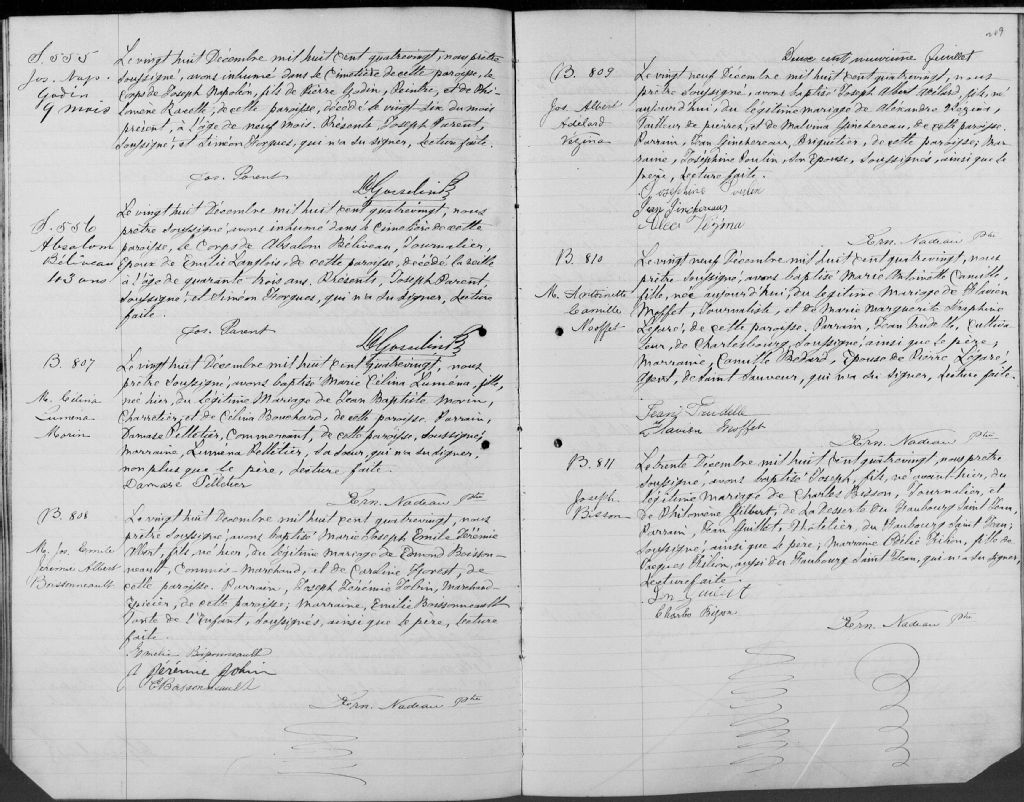 S. 555
Jos. Nap.
Godin
9 mois
Le vingt huit Décembre mil huit cent quatrevingt, nous prêtre
soussigné, avons inhumé dans le Cimetière de cette paroisse, le
Corps de Joseph Napoléon, fils de Pierre Godin, Peintre, et de Phi-
lomène Racette, de cette paroisse, décédé le vingt six du mois
présent, à l'âge de neuf mois. Présents Joseph Parent,
soussigné, et Siméon Forgues, qui n'a su signer, Lecture faite.
Jos. Parent
Gosselin
S. 556
Absalom
Béliveau
43 ans
Le vingt huit Décembre mil huit cent quatrevingt, nous
prêtre soussigné, avons inhumé dans le Cimetière de cette
paroisse, le Corps de Absalom Béliveau, Journalier,
Epoux de Emilie Langlois, de cette paroisse, décédé la veille
à l'âge de quarante trois ans. Présents, Joseph Parent,
soussigné, et Siméon Forgues, qui n'a su signer, Lecture
faite.
Jos. Parent
Gosselin
B. 807
M. Célina
Lumena
Morin
Le vingt huit Décembre mil huit cent quatrevingt, nous
prêtre soussigné, avons baptisé Marie Célina Luména, fille,
née hier, du légitime Mariage de Jean Baptiste Morin,
Charretier, et de Célina Bouchard, de cette paroisse. Parrain,
Damase Pelletier, Commerçant, de cette paroisse, soussigné;
marraine, Lumena Pelletier, sa sœur, qui n'a su signer,
non plus que le père, Lecture faite.
Damase Pelletier
Ern. Nadeau Ptre
B. 808
Jos. Emile
Albert
Boissonneault
Le vingt huit Décembre mil huit cent quatrevingt, nous
prêtre soussigné, avons baptisé Marie Joseph Emile Jérémie
Albert, fils, né hier, du légitime mariage de Edmond Boisson-
neault, Commis-Marchand, et de Caroline Forest, de
cette paroisse. Parrain, Joseph Jérémie Jobin, Marchand-
Epicier, de cette paroisse; Marraine, Emilie Boissonneault
Tante de l'Enfant, soussignés, ainsi que le père, Lecture
faite.
Emelie Boissonneault
Jérémie Jobin
E Boissonneault
Ern. Nadeau Ptre
209
Deux cent neuvième feuillet
B. 809
Jos. Albert
Adélard
Vézina
Le vingt neuf Décembre mil huit cent quatrevingt, nous
prêtre soussigné, avons baptisé Joseph Albert Adélard, fils, né
aujourd'hui, du légitime mariage de Alexandre Vézina,
Tailleur de pierres, et de Malvina Guichereau, de cette paroisse.
Parrain, Jean Guichereau, Briquetier, de cette paroisse; Mar-
raine, Joséphine Poulin, son Epouse, soussignés, ainsi que le
père, Lecture faite.
Josephine Poulin
Jean Jinchereau
Alex Vezina
Ern. Nadeau Ptre
B. 810
M. Antoinette
Camille
Moffet
Le vingt neuf Décembre mil huit cent quatrevingt, nous
prêtre soussigné, avons baptisé Marie Antoinette Camille,
fille, née aujourd'hui, du légitime Mariage de Flavien
Moffet, Journaliste, et de Marie Marguerite Séraphine
Légaré, de cette paroisse. Parrain, Jean Trudelle, Cultiva-
teur, de Charlesbourg, soussigné, ainsi que le père;
Marraine, Camille Bédard, Epouse de Pierre Légaré,
de Saint Sauveur, qui n'a su signer, Lecture faite.
Jean Trudelle
Flavien Moffet
Ern. Nadeau Ptre
B. 811
Joseph
Bisson
Le trente Décembre mil huit cent quatrevingt, nous prêtre
soussigné, avons baptisé Joseph, fils, né avant-hier, du
légitime mariage de Charles Bisson, Journalier, et
de Philomène Gilbert, de La Desserte du Faubourg Saint Jean,
Parrain, Jean Guillot, Hôtelier, du Faubourg Saint Jean;
soussigné, ainsi que le père; Marraine, fille de
Jacques aussi du Faubourg Saint Jean, qui n'a su signer,
Lecture faite.
Jn Guillot
Charles Bisson
Ern. Nadeau Ptre